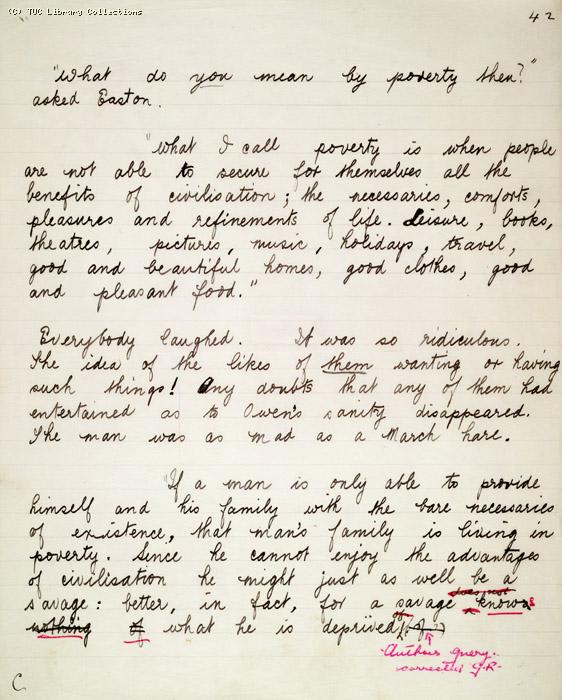 (C) TUC Library Collections
42
"What do you mean by poverty then?"
asked Easton.
"What I call poverty is when people
are not able to secure for themselves all the
benefits of civilisation; the necessaries, comforts,
pleasures and refinements of life. Leisure, books,
theatres, pictures, music, holidays, travel,
good and beautiful homes, good clothes, good
and pleasant food."
Everybody laughed. It was so ridiculous.
The idea of the likes of them wanting or having
such things! Any doubts that any of them had
entertained as to Owen's sanity disappeared.
The man was as mad as a March hare.
"If a man is only able to provide
himself and his family with the bare necessaries
of existence, that man's family is living in
poverty. Since he cannot enjoy the advantages
of civilisation he might just as well be a
does not
savage: better, in fact, for a savage knows
of
nothing of what he is deprived
Authors query.
corrected G.R.
C